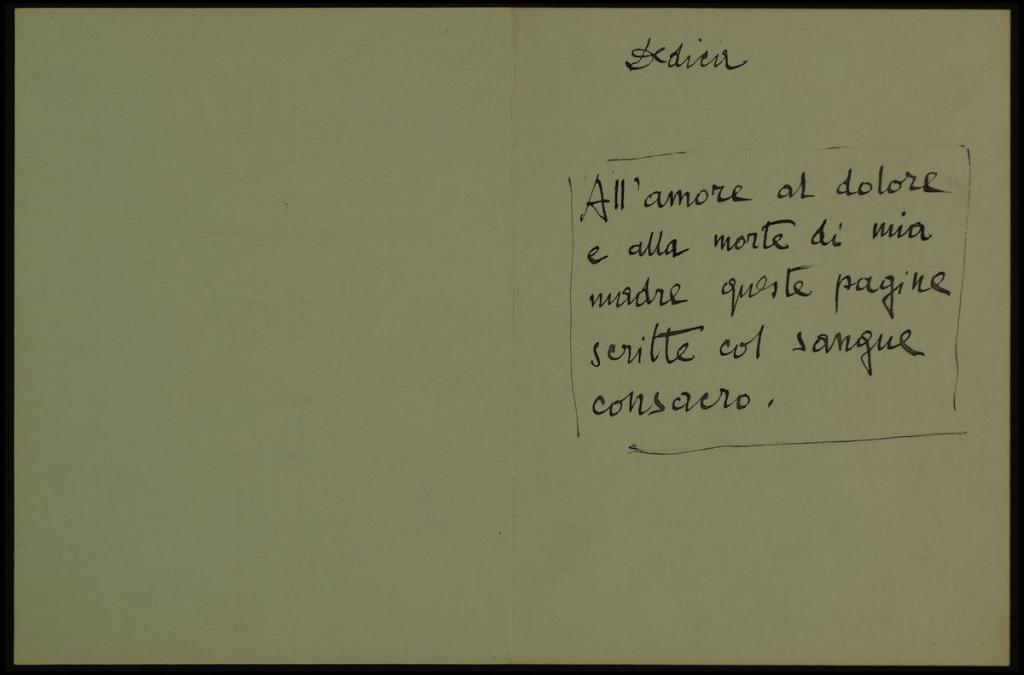 Dedica
All'amore al dolore
e alla morte di mia
madre queste pagine
scritte col sangue
consacro.